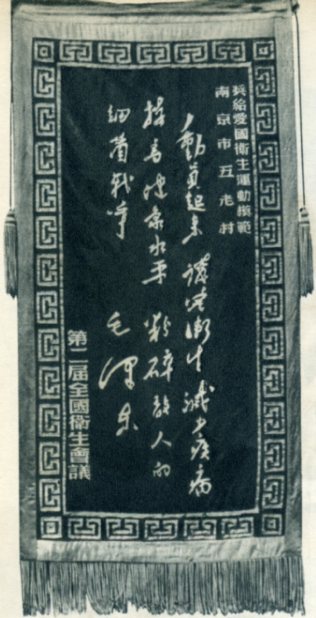 獎給愛國衛生運動模範
南京市五老村
動員起來 講究衛生 減少疾病
提高健康水平 粉碎敵人的
細菌戰爭 毛澤東
第二屆全國衛生會議